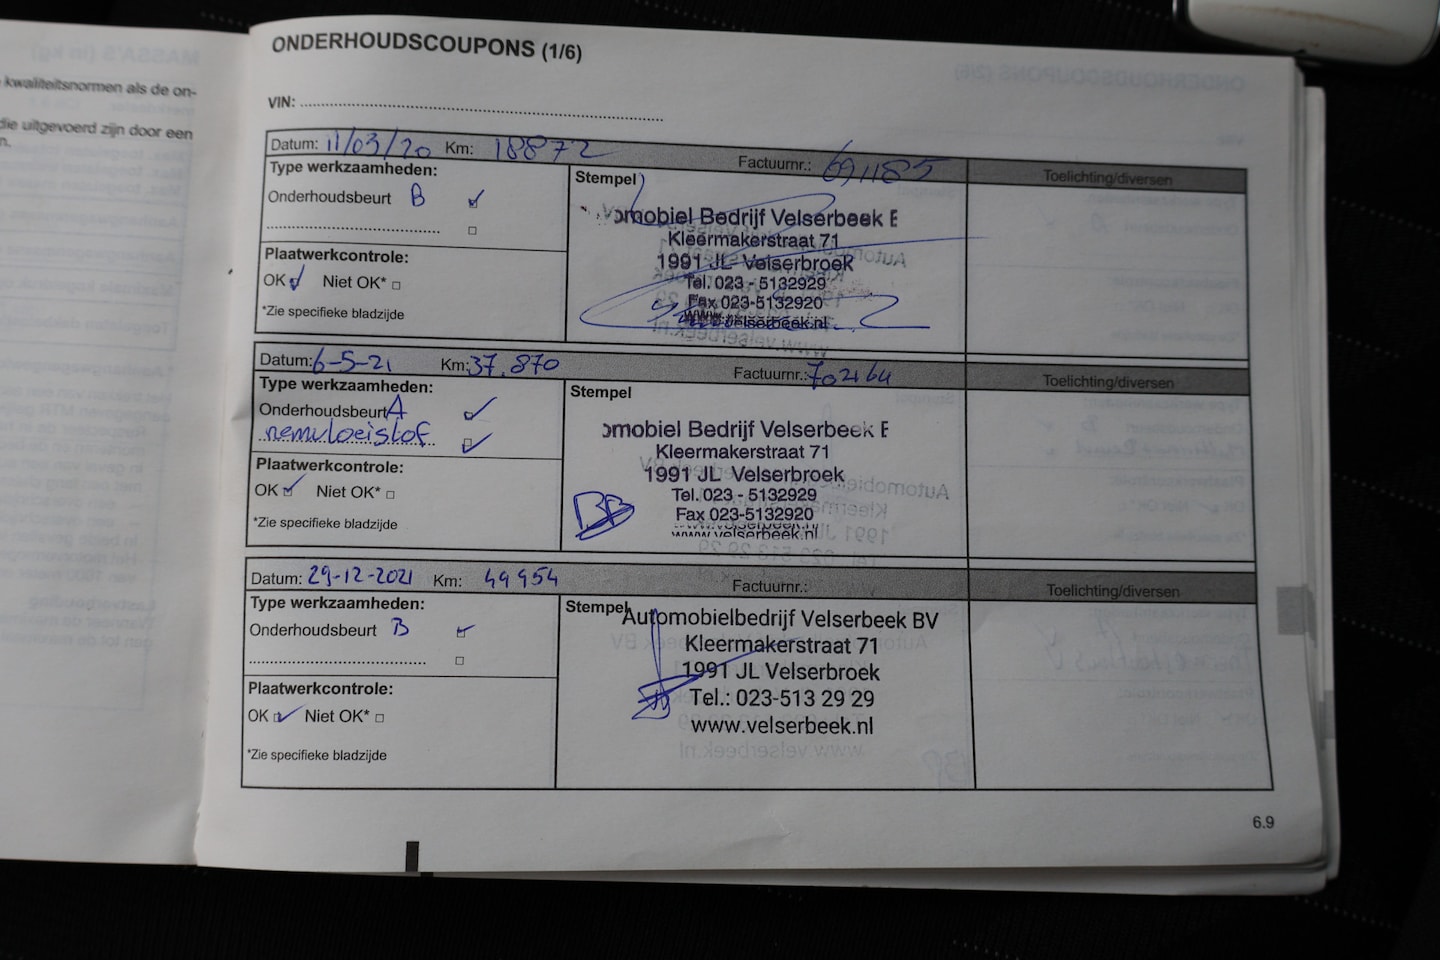 kwaliteitsnormen als de on-
die uitgevoerd zijn door een
n.
ONDERHOUDSCOUPONS (1/6)
VIN:
Datum: 11/03/20 Km: 18872 Factuurnr.: 691185
Type werkzaamheden:
Stempel
Toelichting/diversen
Onderhoudsbeurt B
omobiel Bedrijf Velserbeek B
Kleermakerstraat 71
1991 JL Velserbroek
Tel. 023 - 5132929
Fax 023-5132920
www.velserbeek.nl
Plaatwerkcontrole:
OK Niet OK*
*Zie specifieke bladzijde
Datum: 6-5-21 Km: 37.870 Factuurnr.: 702164
Type werkzaamheden:
Stempel
Toelichting/diversen
Onderhoudsbeurt A
remvloeistof
omobiel Bedrijf Velserbeek B
Kleermakerstraat 71
1991 JL Velserbroek
Tel. 023 - 5132929
Fax 023-5132920
www.velserbeek.nl
Plaatwerkcontrole:
OK Niet OK*
*Zie specifieke bladzijde
Datum: 29-12-2021 Km: 49954 Factuurnr.:
Type werkzaamheden:
Stempel
Toelichting/diversen
Onderhoudsbeurt B
Automobielbedrijf Velserbeek BV
Kleermakerstraat 71
1991 JL Velserbroek
Tel.: 023-513 29 29
www.velserbeek.nl
Plaatwerkcontrole:
OK Niet OK*
*Zie specifieke bladzijde
6.9